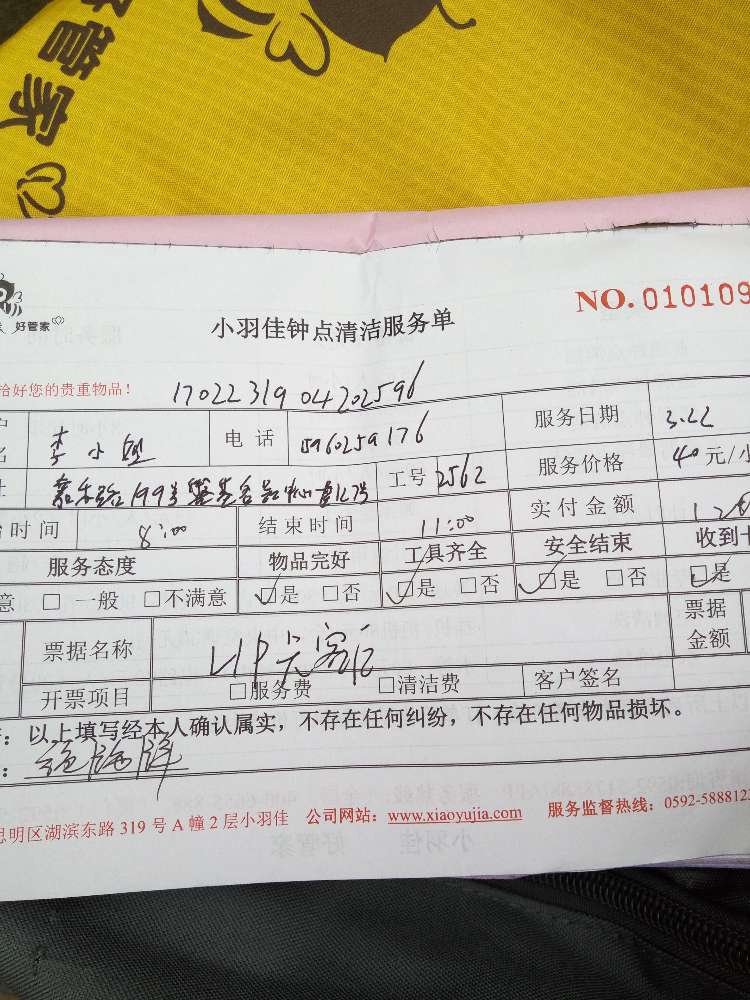 好管家
好管家
NO. 010109
小羽佳钟点清洁服务单
恰好您的贵重物品！
17022319 04202596
李小姐 电话 5960259176 服务日期 3.22
嘉禾路199号 工号 2562 服务价格 40元/小
时间 8:00 结束时间 11:00 实付金额 12
服务态度 物品完好 工具齐全 安全结束 收到
意 □一般 □不满意 ☑是 □否 ☑是 □否 ☑是 □否 ☑是
票据名称 VIP卡客户 票据金额
开票项目 □服务费 □清洁费 客户签名
：以上填写经本人确认属实，不存在任何纠纷，不存在任何物品损坏。
思明区湖滨东路 319 号 A 幢 2 层小羽佳 公司网站：www.xiaoyujia.com 服务监督热线：0592-588812